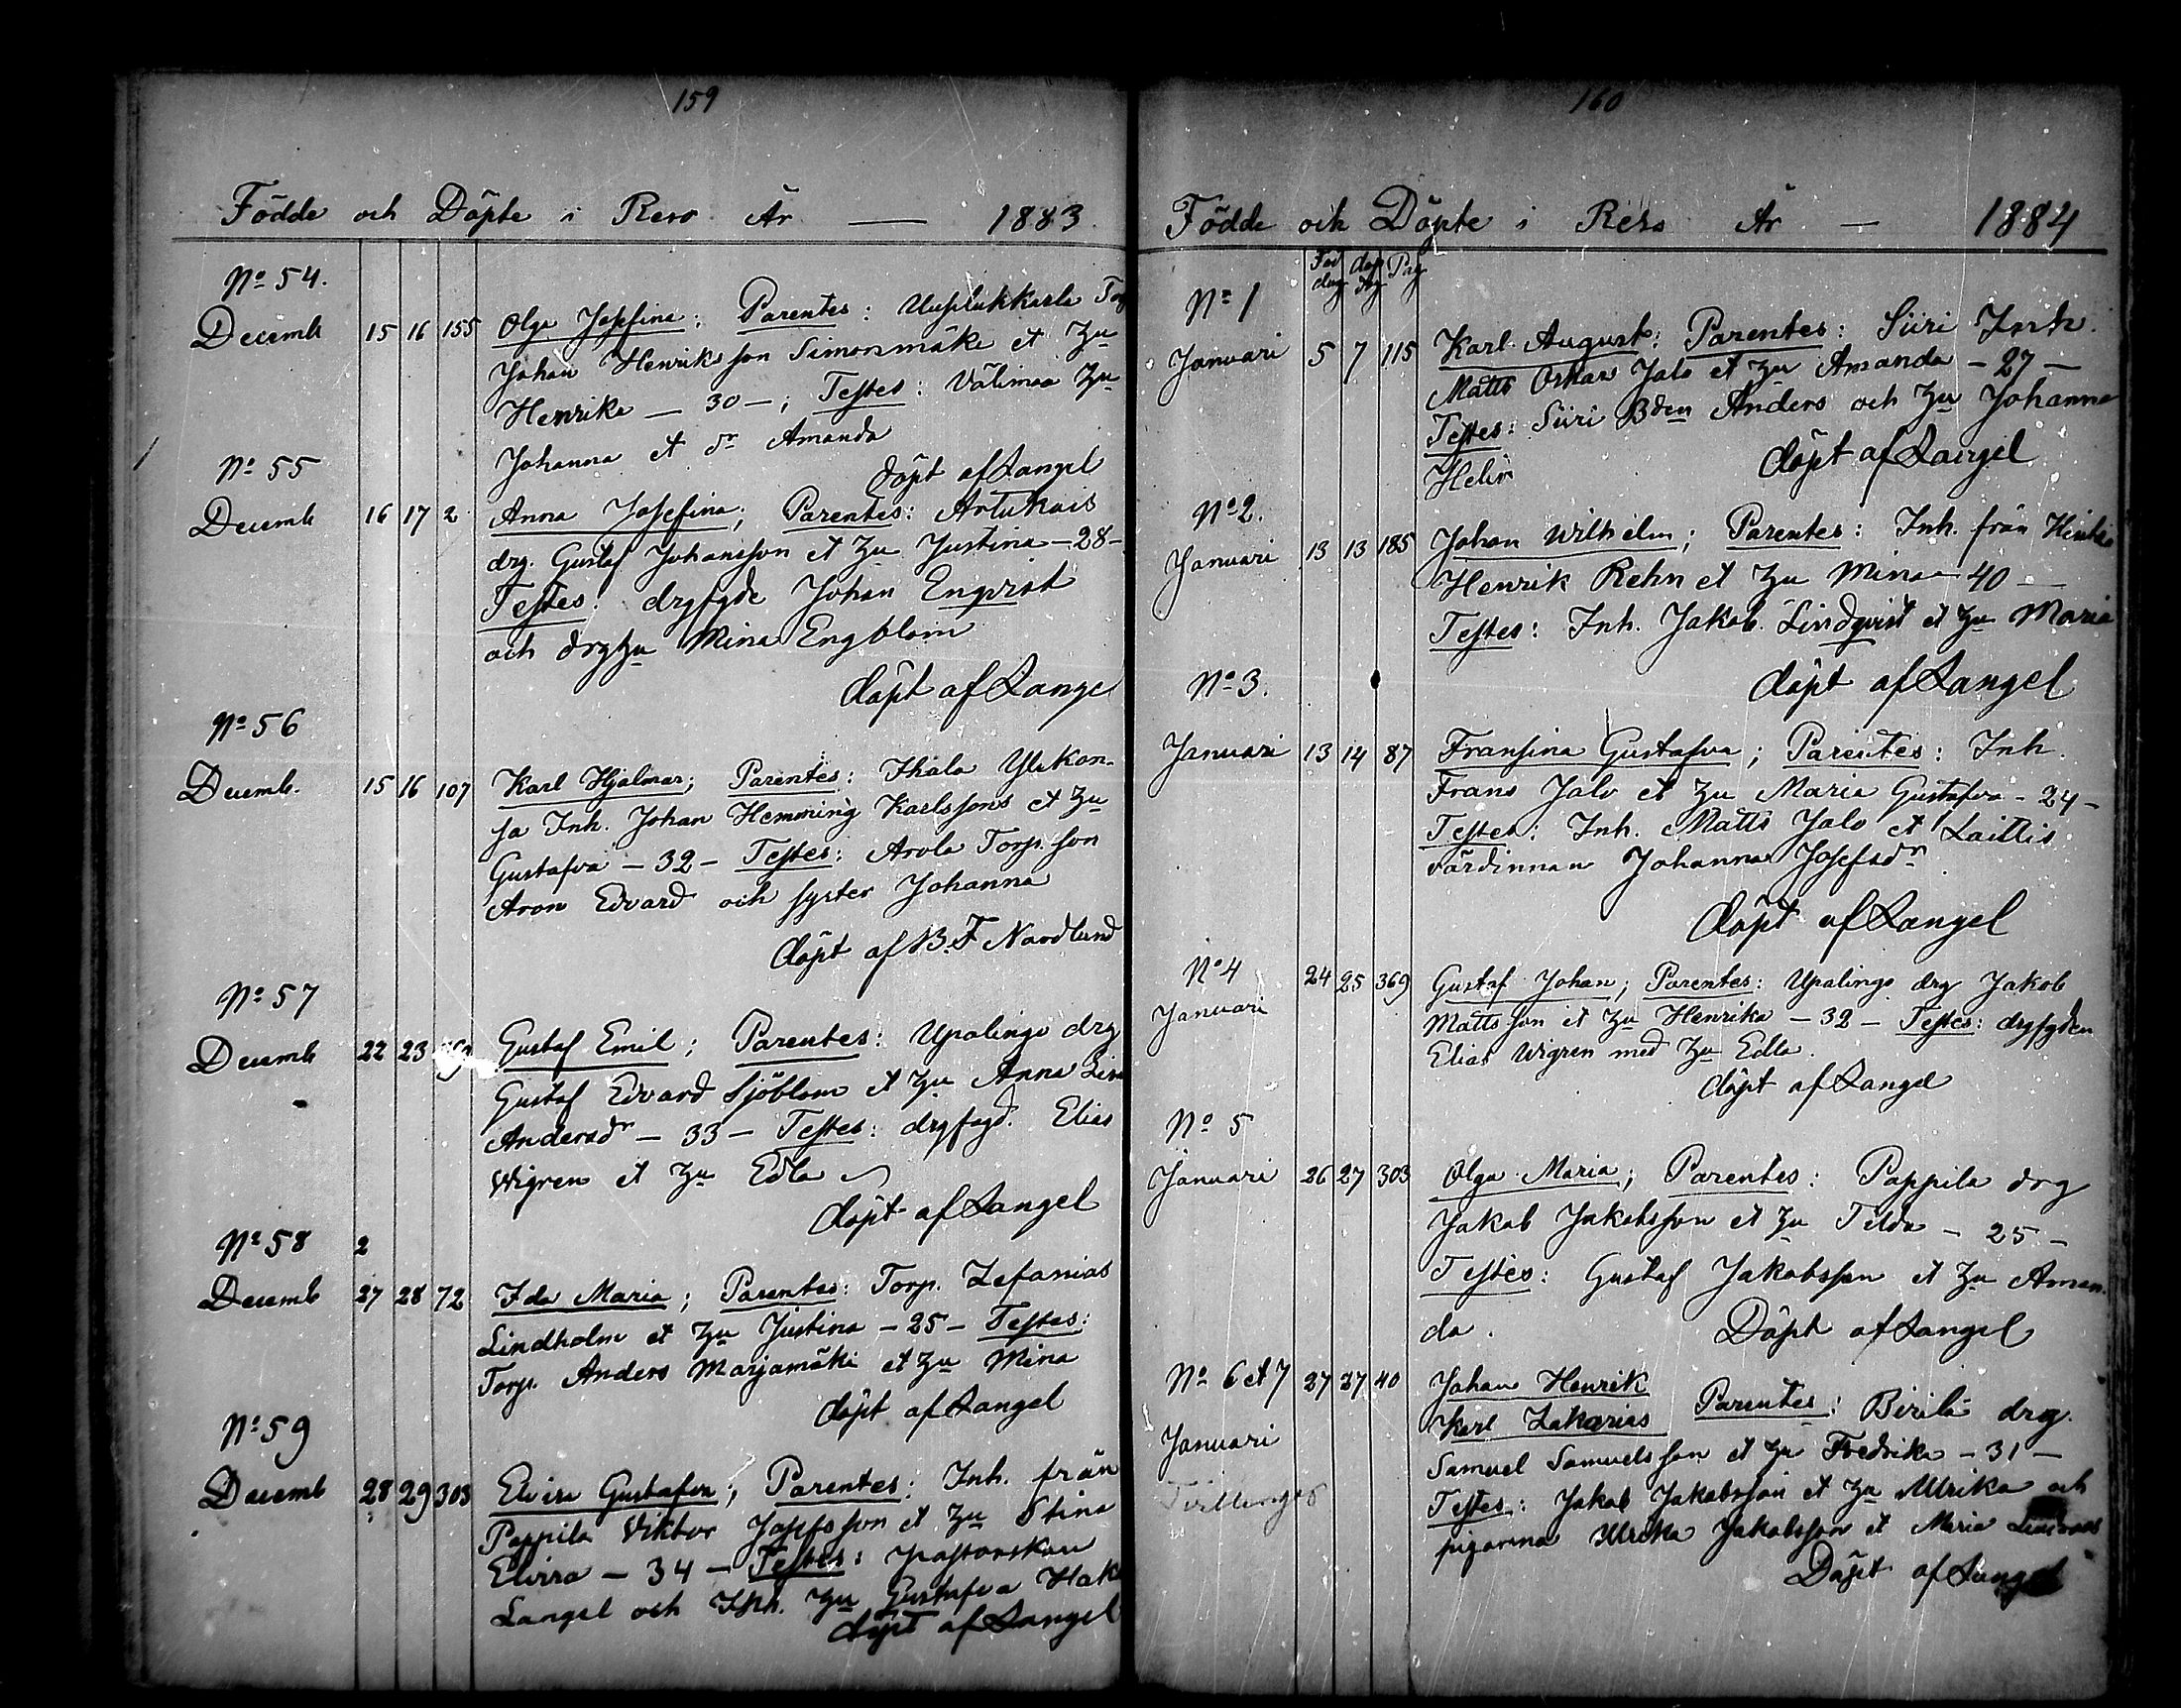 159
Födde och Döpte i Reso År — 1883.
No 54.
Decemb 15 16 155 Olga Josefina; Parentes: Uusilukkarla Torp
Johan Henriksson Simonmäki et Hu
Henrika — 30 —; Testes: Välimaa Hu
Johanna et dr Amanda
döpt af Langel
No 55
Decemb 16 17 2 Anna Josefina; Parentes: Artukais
drg. Gustaf Johansson et Hu Justina — 28 —
Testes: drgfgde Johan Engvist
och drghu Mina Engblom
döpt af Langel
No 56
Decemb. 15 16 107 Karl Hjalmar; Parentes: Ihala Ylikon-
sa Inh. Johan Hemming Karlssons et Hu
Gustafva — 32 — Testes: Arola Torp. son
Aron Edvard och syster Johanna
döpt af B. F Nordlund
No 57
Decemb 22 23 Gustaf Emil; Parentes: Upalingo drg
Gustaf Edvard Sjöblom et Hu Anna Lisa
Andersdr — 33 — Testes: drgfogd. Elias
Wigren et Hu Edla
döpt af Langel
No 58 2
Decemb 27 28 72 Ida Maria; Parentes: Torp. Zefanias
Lindholm et Hu Justina — 25 — Testes:
Torp. Anders Marjamäki et Hu Mina
döpt af Langel
No 59
Decemb 28 29 303 Elvira Gustafva; Parentes: Inh. från
Pappila Viktor Josefsson et Hu Stina
Elvira — 34 — Testes: pastorskan
Langel och Inh. Hu Gustafva Hak
döpt af Langel
160
Födde och Döpte i Reso År — 1884
Föd dag döp dag Pag
No 1
Januari 5 7 115 Karl August: Parentes: Siiri Inh.
Matts Oskar Jalo et Hu Amanda — 27 —
Testes: Siiri Bden Anders och Hu Johanna
Helin döpt af Langel
No 2.
Januari 13 13 185 Johan Wilhelm; Parentes: Inh. från
Henrik Rehn et Hu Mina — 40 —
Testes: Inh. Jakob Lindqvist et Hu Maria
döpt af Langel
No 3.
Januari 13 14 87 Fransina Gustafva; Parentes: Inh.
Frans Jalo et Hu Maria Gustafva — 24 —
Testes: Inh. Matts Jalo et Laittis
värdinnan Johanna Josefsdr
döpt af Langel
No 4 24 25 369 Gustaf Johan; Parentes: Upalingo drg Jakob
Januari Mattsson et Hu Henrika — 32 — Testes: drgfgden
Elias Wigren med Hu Edla.
döpt af Langel
No 5
Januari 26 27 303 Olga Maria; Parentes: Pappila drg
Jakob Jakobsson et Hu Tilda — 25 —
Testes: Gustaf Jakobsson et Hu Aman-
da. Döpt af Langel
No 6 et 7 27 27 40 Johan Henrik
Karl Zakarias Parentes: Birila drg.
Januari Samuel Samuelsson et Hu Fredrika — 31 —
Tvillingar Testes: Jakob Jakobsson et Hu Ulrika och
pigorna Ulrika Jakobsson et Maria
Döpt af Langel